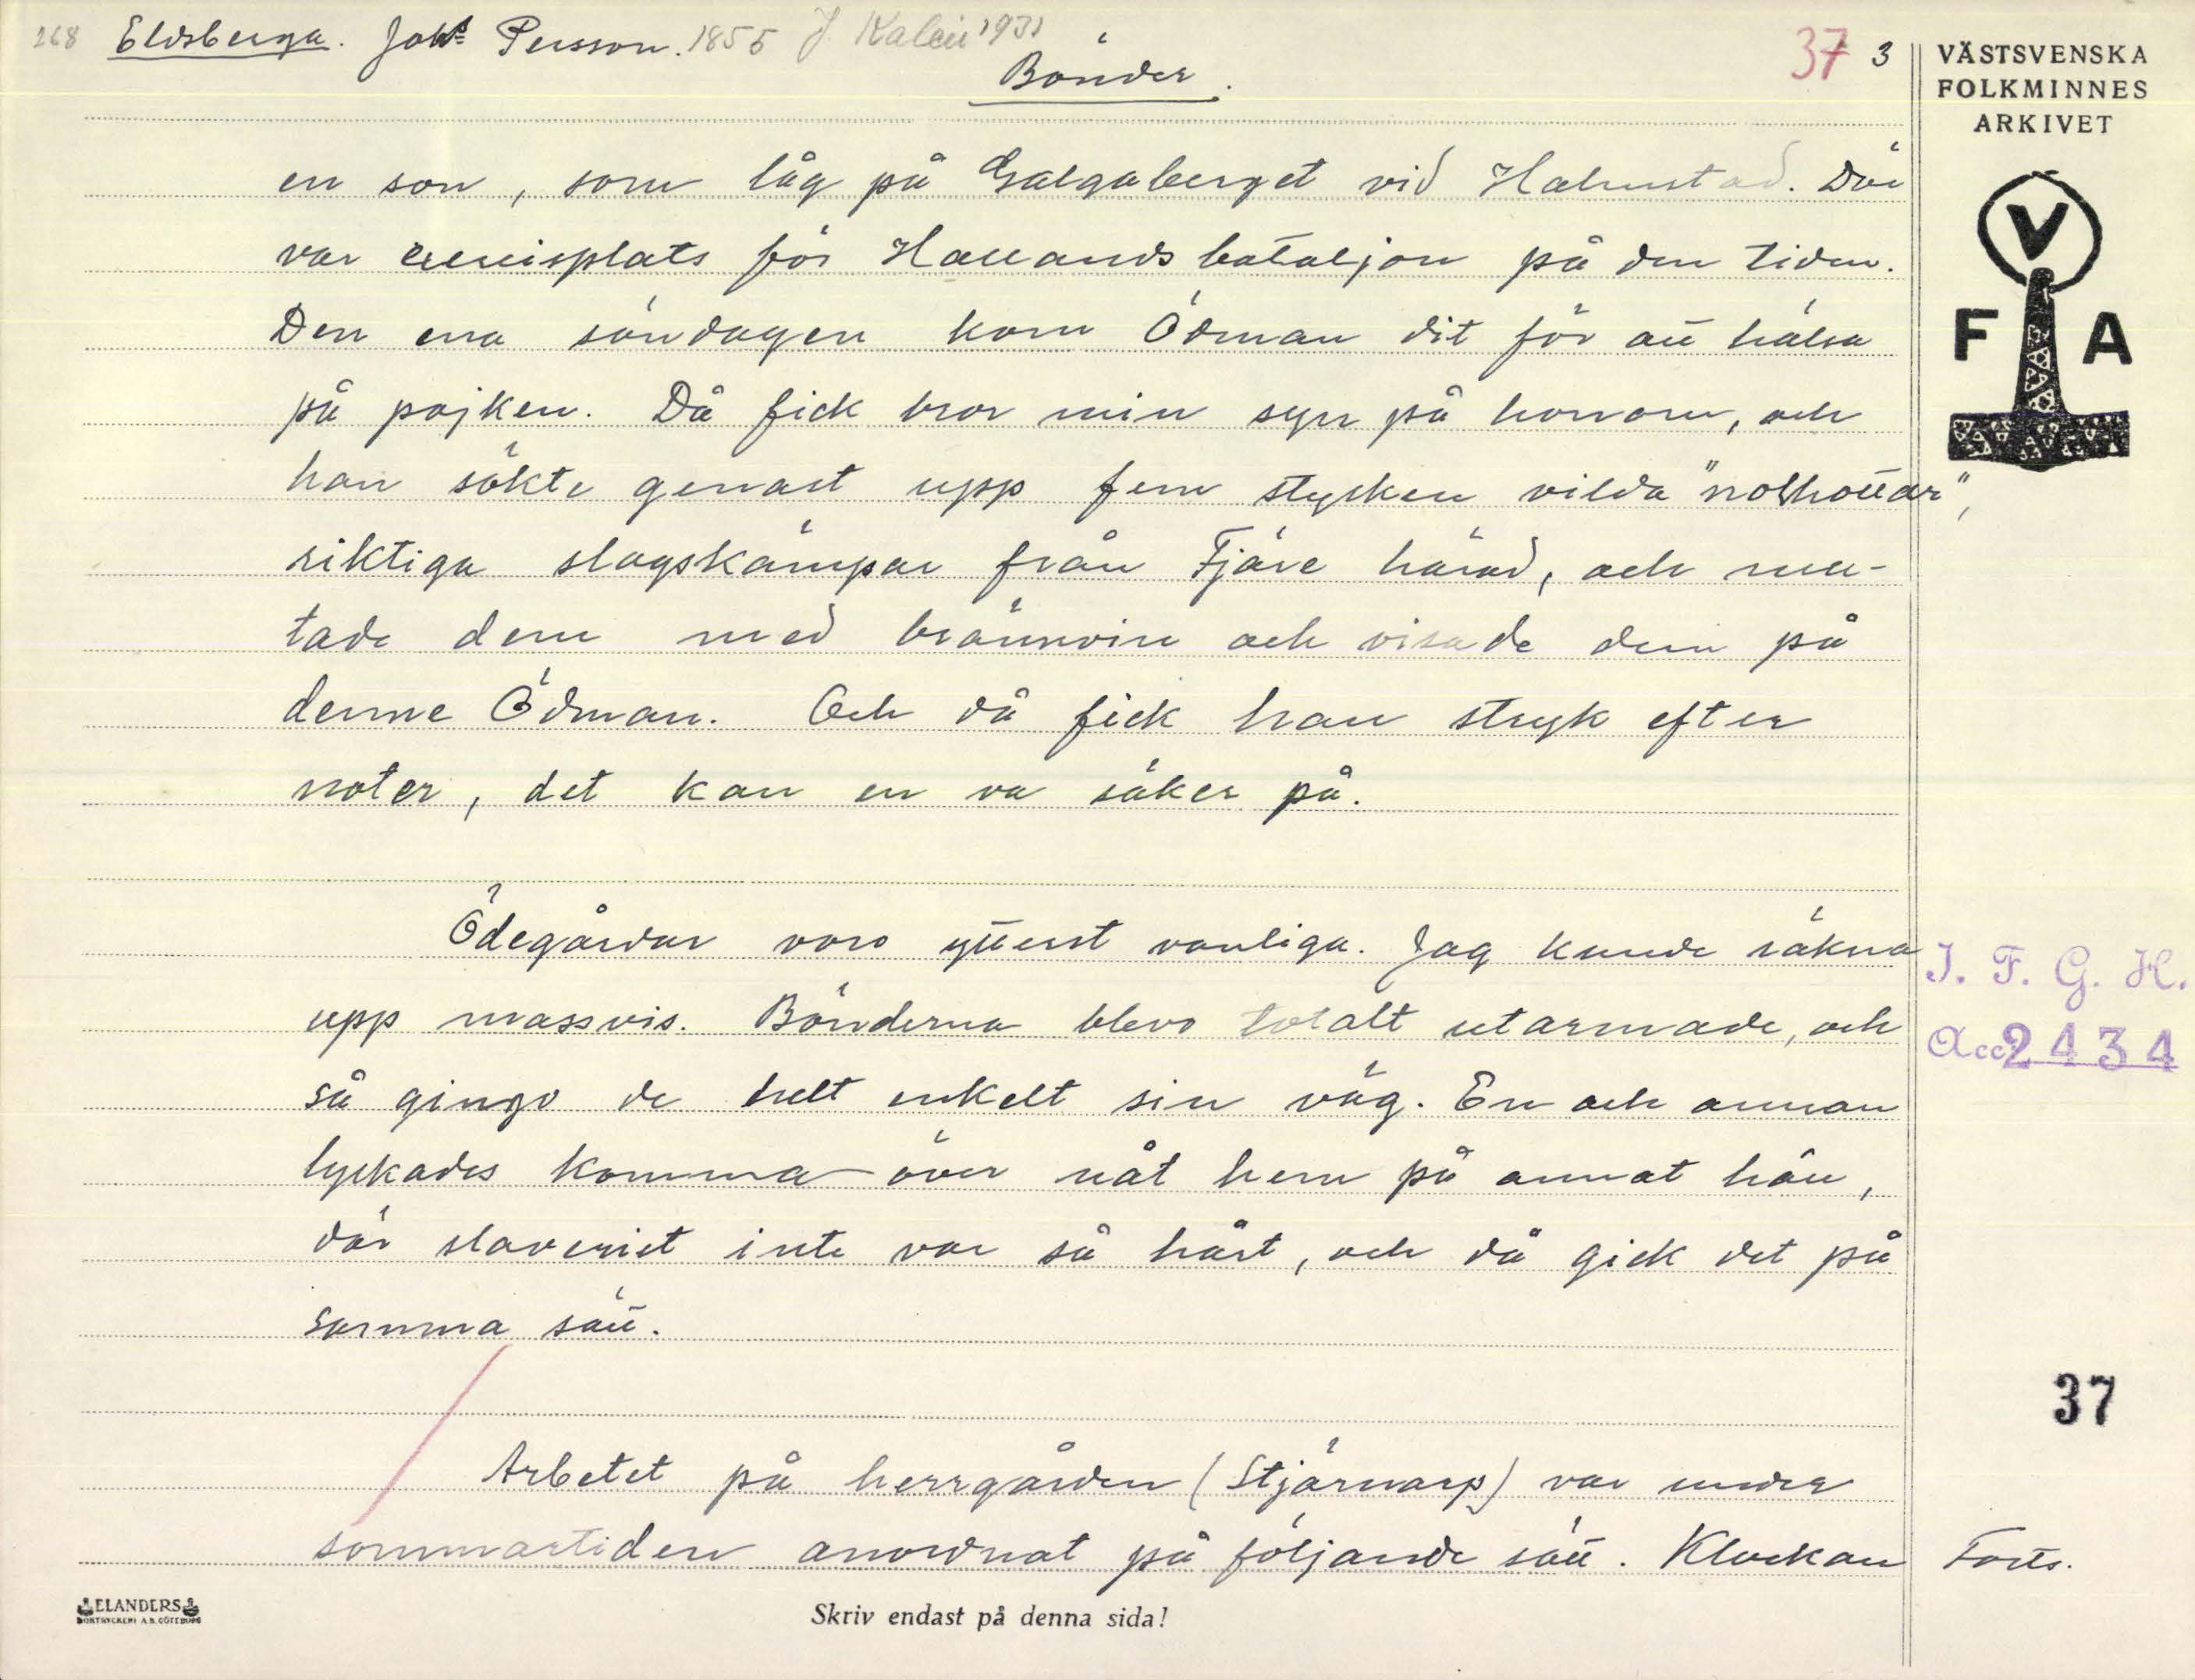 268 Eldsberga. Johs Persson. 1855 J. Kalén 1931
Bönder.
37 3
VÄSTSVENSKA
FOLKMINNES
ARKIVET
V
F A
en son, som låg på Galgaberget vid Halmstad. Där
var exercisplats för Hallands bataljon på den tiden.
Den ena söndagen kom Ödman dit för att hälsa
på pojken. Då fick bror min syn på honom, och
han sökte genast upp fem stycken vilda "nolhottar",
riktiga slagskämpar från Fjäre härad, och mu-
tade dem med brännvin och visade dem på
denne Ödman. Och då fick han stryk efter
noter, det kan en va säker på.
Ödegårdar voro ytterst vanliga. Jag kunde räkna
upp massvis. Bönderna blevo totalt utarmade, och
så gingo de helt enkelt sin väg. En och annan
lyckades komma över nåt hem på annat håll,
där slaveriet inte var så hårt, och då gick det på
samma sätt.
I. F. G. H.
Acc 2434
37
Arbetet på herrgården (Stjärnarp) var under
sommartiden anordnat på följande sätt. Klockan
Forts.
ELANDERS
BOKTRYCKERI A.B. GÖTEBORG
Skriv endast på denna sida!